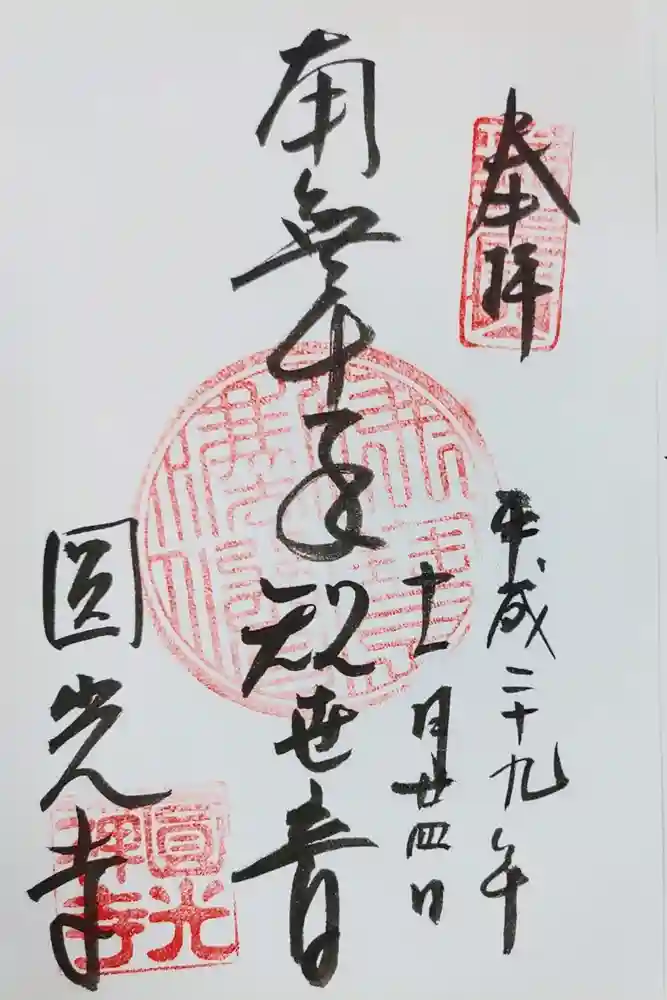 奉拝
平成二十九年
十一月廿四日
南無千手観世音
圓光寺
圓光
禅寺